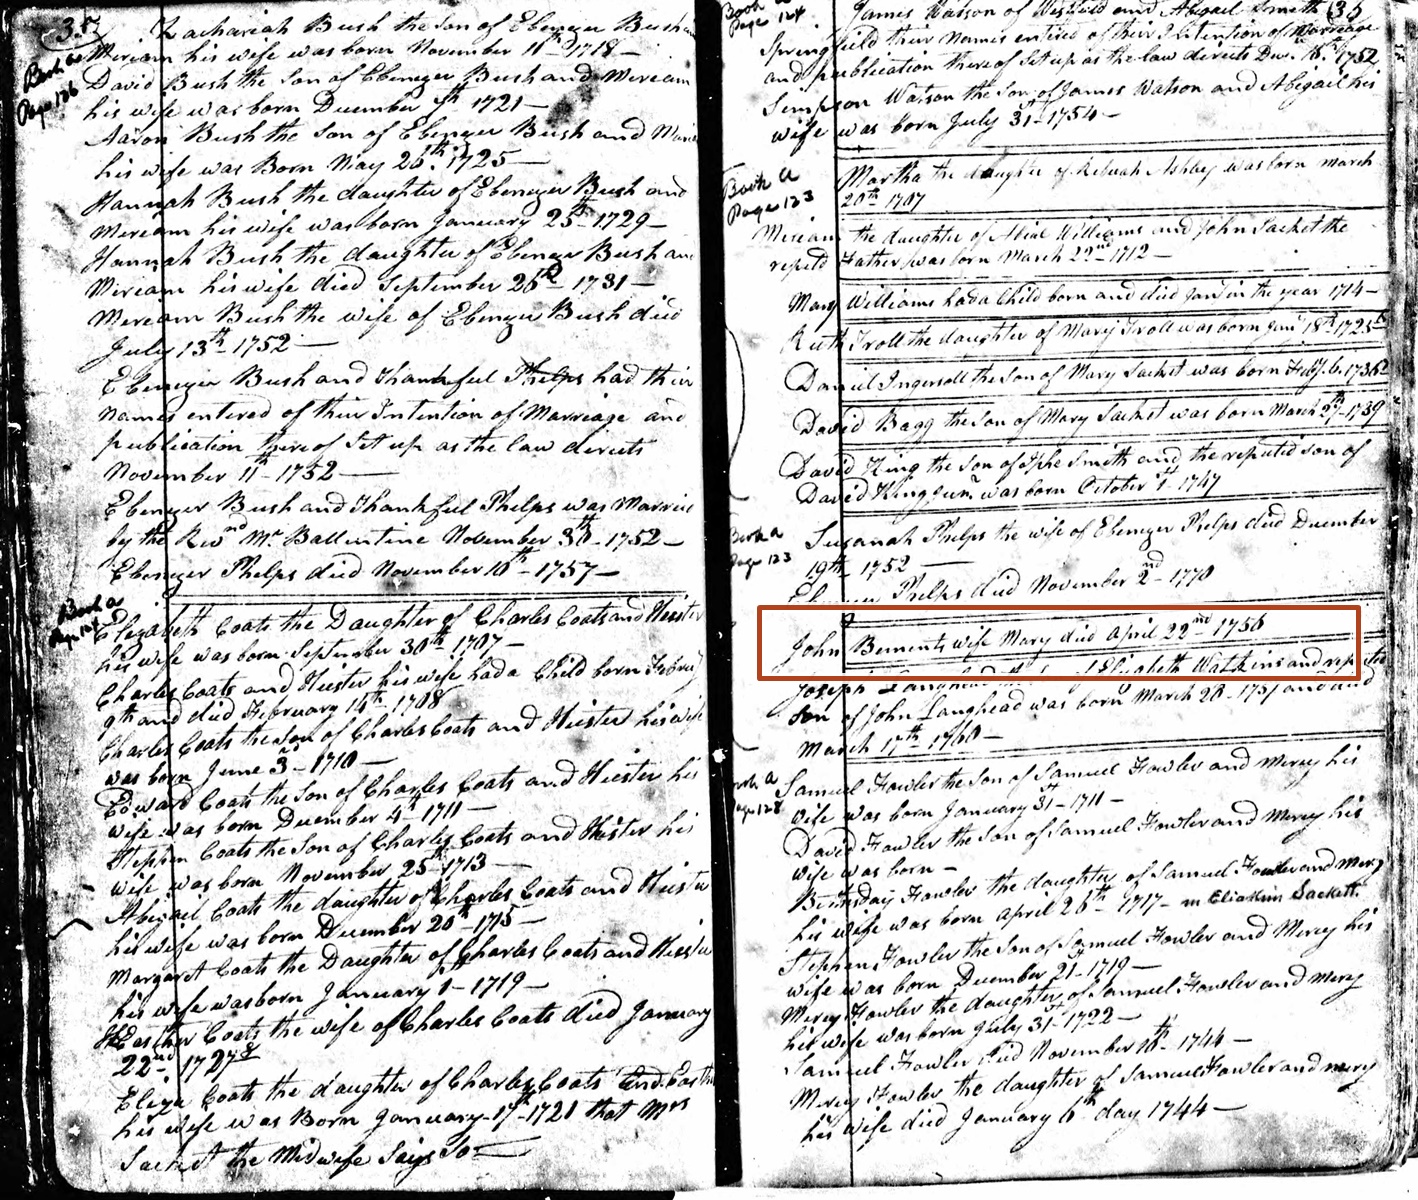 35
Zachariah Bush the Son of Ebenezer Bush
Book a
Page 126
Meriam his wife was born November 11th 1718 —
David Bush the Son of Ebenezer Bush and Meriam
his wife was born December 1721 —
Aaron Bush the Son of Ebenezer Bush and
his wife was Born May 26th 1725 —
Hannah Bush the daughter of Ebenezer Bush and
Meriam his wife was born January 25th 1729 —
Hannah Bush the daughter of Ebenezer Bush an
Meriam his wife died September 26th 1731 —
Meream Bush the wife of Ebenezer Bush died
July 13th 1752 —
Ebenezer Bush and Thankful Phelps had their
names entered of their Intention of Marriage and
publication thereof Set up as the law directs
November 11th 1752 —
Ebenezer Bush and Thankful Phelps was Married
by the Revnd Mr Ballentine November 30th 1752 —
Ebenezer Phelps died November 10th 1757 —
Book a
Page
Elizabeth Coats the Daughter of Charles Coats and Hester
his wife was born September 30th 1707 —
Charles Coats and Hester his wife had a Child born
9th and died February 14th 1708
Charles Coats the Son of Charles Coats and Hester his wife
was born June 3d 1710 —
Edward Coats the Son of Charles Coats and Hester his
wife was born December 4th 1711 —
Stephen Coats the Son of Charles Coats and Hester his
wife was born November 25th 1713 —
Abigail Coats the daughter of Charles Coats and Hester
his wife was born December 20th 1715 —
Margaret Coats the Daughter of Charles Coats and Hester
his wife was born January 1st 1719 —
Easther Coats the wife of Charles Coats died January
22nd 1727/8
Eliza Coats the daughter of Charles Coats And
his wife was Born January 17th 1721 that Mrs
Sacket the Midwife Says So —
Book a
Page 124
James Watson of Westfield and Abigail Smith
35
Springfield their Names entered of their Intention of Marriage
and publication thereof Set up as the law directs 1752
Simpson Watson the Son of James Watson and Abigail his
wife was born July 31st 1754 —
Book a
Page 123
Martha the daughter of Ashley was born march
20th 1707
Meriam the daughter of Abial Williams and John Sacket the
reputd Father was born March 22nd 1712 —
Mary Williams had a Child born and died in the year 1714 —
Ruth Troll the daughter of Mary Troll was born 18th
Daniel Ingersoll the Son of Mary Sacket was born
David Bagg the Son of Mary Sacket was born March 1739
David King the Son of Smith and the reputed son of
David King Junr was born October 1st 1747
Book a
Page 123
Susanah Phelps the wife of Ebenezer Phelps died December
19th 1752 —
Ebenezer Phelps died November 2nd 1770
John Bements wife Mary died April 22nd 1756
Joseph Elizabeth Watkins and reputed
Son of John Langhead was born March 20 1757 and died
March 17th 1760 —
Book a
Page 128
Samuel Fowler the Son of Samuel Fowler and Mercy his
wife was born January 31st 1711 —
David Fowler the Son of Samuel Fowler and Mercy his
wife was born —
Fowler the daughter of Samuel Fowler and Mercy
his wife was born April 26th 1717 — m Eliakim Sackett
Stephen Fowler the Son of Samuel Fowler and Mercy his
wife was born December 21st 1719 —
Mercy Fowler the daughter of Samuel Fowler and Mercy
his wife was born July 31st 1722 —
Samuel Fowler died November 16th 1744 —
Mercy Fowler the daughter of Samuel Fowler and mercy
his wife died January 6th day 1744 —